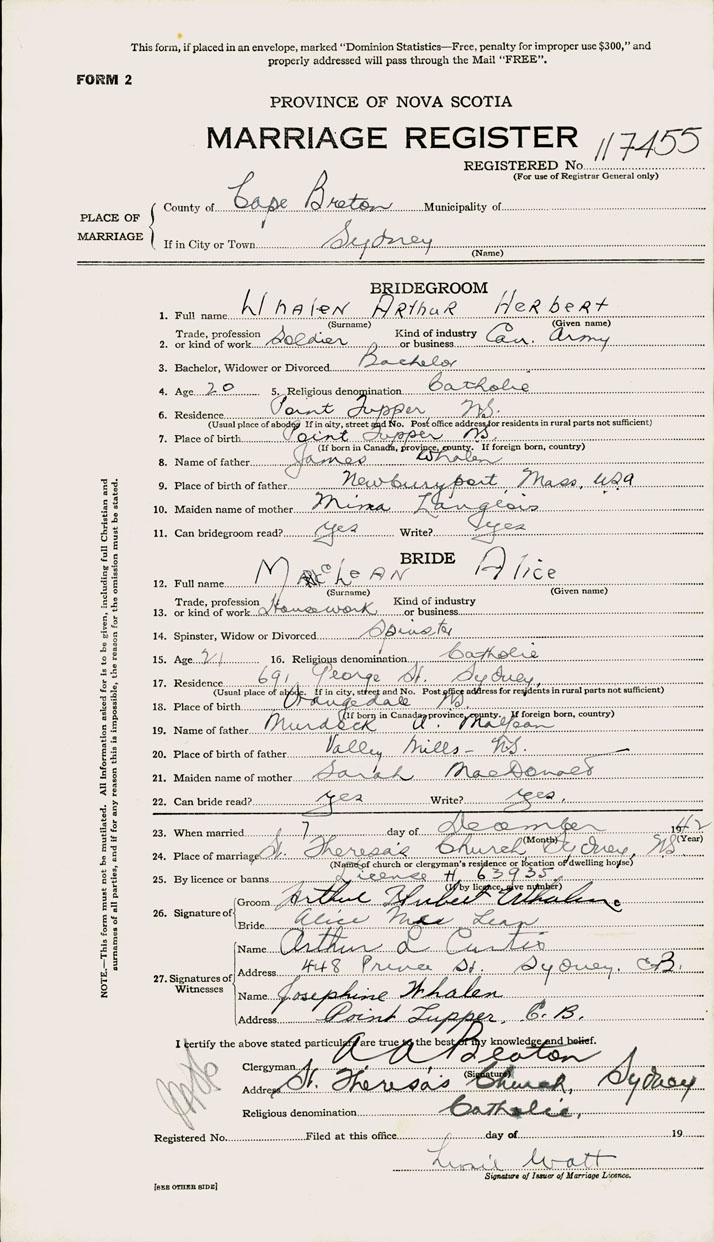 This form, if placed in an envelope, marked "Dominion Statistics—Free, penalty for improper use $300," and
properly addressed will pass through the Mail "FREE".
FORM 2
PROVINCE OF NOVA SCOTIA
MARRIAGE REGISTER
117455
REGISTERED No.
(For use of Registrar General only)
PLACE OF MARRIAGE
County of Cape Breton Municipality of
If in City or Town Sydney
(Name)
BRIDEGROOM
1. Full name Whalen Arthur Herbert
(Surname) (Given name)
2. Trade, profession or kind of work Soldier Kind of industry or business Can. Army
3. Bachelor, Widower or Divorced Bachelor
4. Age 20 5. Religious denomination Catholic
6. Residence Point Tupper NS.
(Usual place of abode. If in city, street and No. Post office address for residents in rural parts not sufficient)
7. Place of birth Point Tupper NS.
(If born in Canada, province, county. If foreign born, country)
8. Name of father James Whalen
9. Place of birth of father Newburyport, Mass, USA
10. Maiden name of mother Mima Langlois
11. Can bridegroom read? yes Write? yes
BRIDE
12. Full name MacLean Alice
(Surname) (Given name)
13. Trade, profession or kind of work Housework Kind of industry or business
14. Spinster, Widow or Divorced Spinster
15. Age 21 16. Religious denomination Catholic
17. Residence 691 George St. Sydney,
(Usual place of abode. If in city, street and No. Post office address for residents in rural parts not sufficient)
18. Place of birth Orangedale NS.
(If born in Canada, province, county. If foreign born, country)
19. Name of father Murdock A. MacLean
20. Place of birth of father Valley Mills - NS.
21. Maiden name of mother Sarah MacDonald
22. Can bride read? yes Write? yes.
23. When married 7 day of December 1942
(Month) (Year)
24. Place of marriage St. Theresa's Church Sydney, NS.
(Name of church or clergyman's residence or location of dwelling house)
25. By licence or banns License # 63935
(If by licence, give number)
26. Signature of
Groom Arthur Hubert Whalen
Bride Alice Mac Lean
27. Signatures of Witnesses
Name Arthur L Curtis
Address 448 Prince St. Sydney. C.B.
Name Josephine Whalen
Address Point Tupper, C.B.
I certify the above stated particulars are true to the best of my knowledge and belief.
Clergyman A A Beaton
(Signature)
Address St. Theresa's Church, Sydney
Religious denomination Catholic,
Registered No. Filed at this office day of 19
Watt
Signature of Issuer of Marriage Licence.
[SEE OTHER SIDE]
NOTE.—This form must not be mutilated. All Information asked for is to be given, including full Christian and
surnames of all parties, and if for any reason this is impossible, the reason for the omission must be stated.